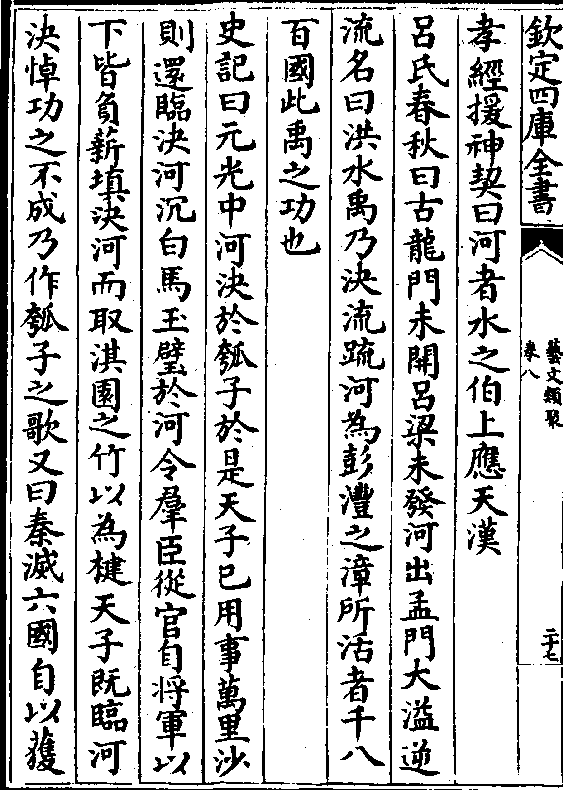 欽定四庫全書
藝文類聚
卷八
二十七
孝經援神契曰河者水之伯上應天漢
呂氏春秋曰古龍門未開呂梁未發河出孟門大溢逆
流名曰洪水禹乃決流䟽河為彭灃之漳所活者千八
百國此禹之功也
史記曰元光中河決於瓠子於是天子已用事萬里沙
則還臨決河沉白馬玉璧於河令羣臣從官自將軍以
下皆負薪填決河而取淇園之竹以為楗天子既臨河
決悼功之不成乃作瓠子之歌又曰秦滅六國自以獲